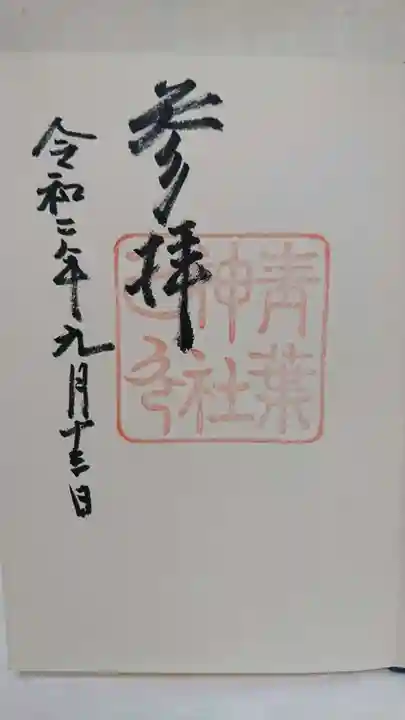 参拝
青葉
神社
之印
令和二年九月十三日